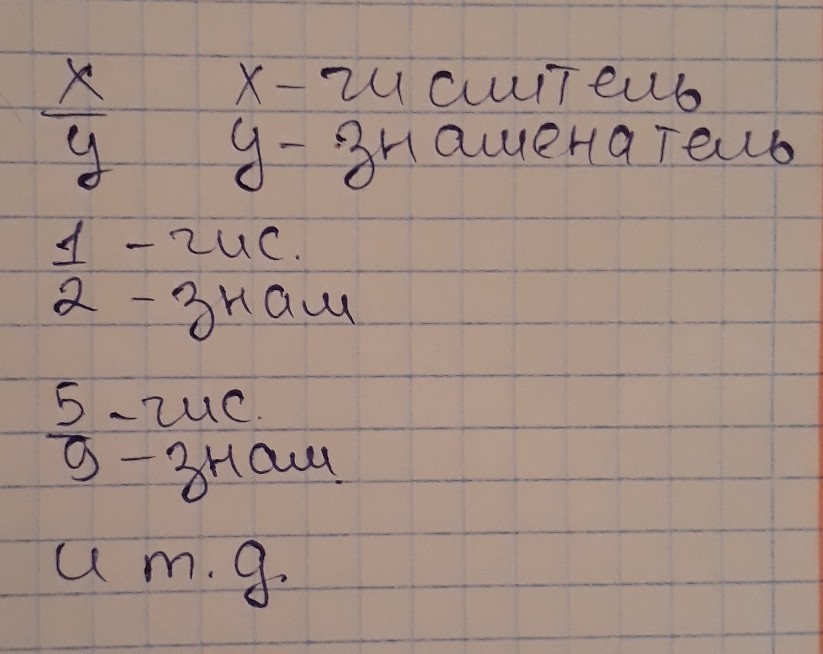 x/y x - числитель
y - знаменатель
1 - чис.
2 - знам
5 - чис.
9 - знам.
и т. д.